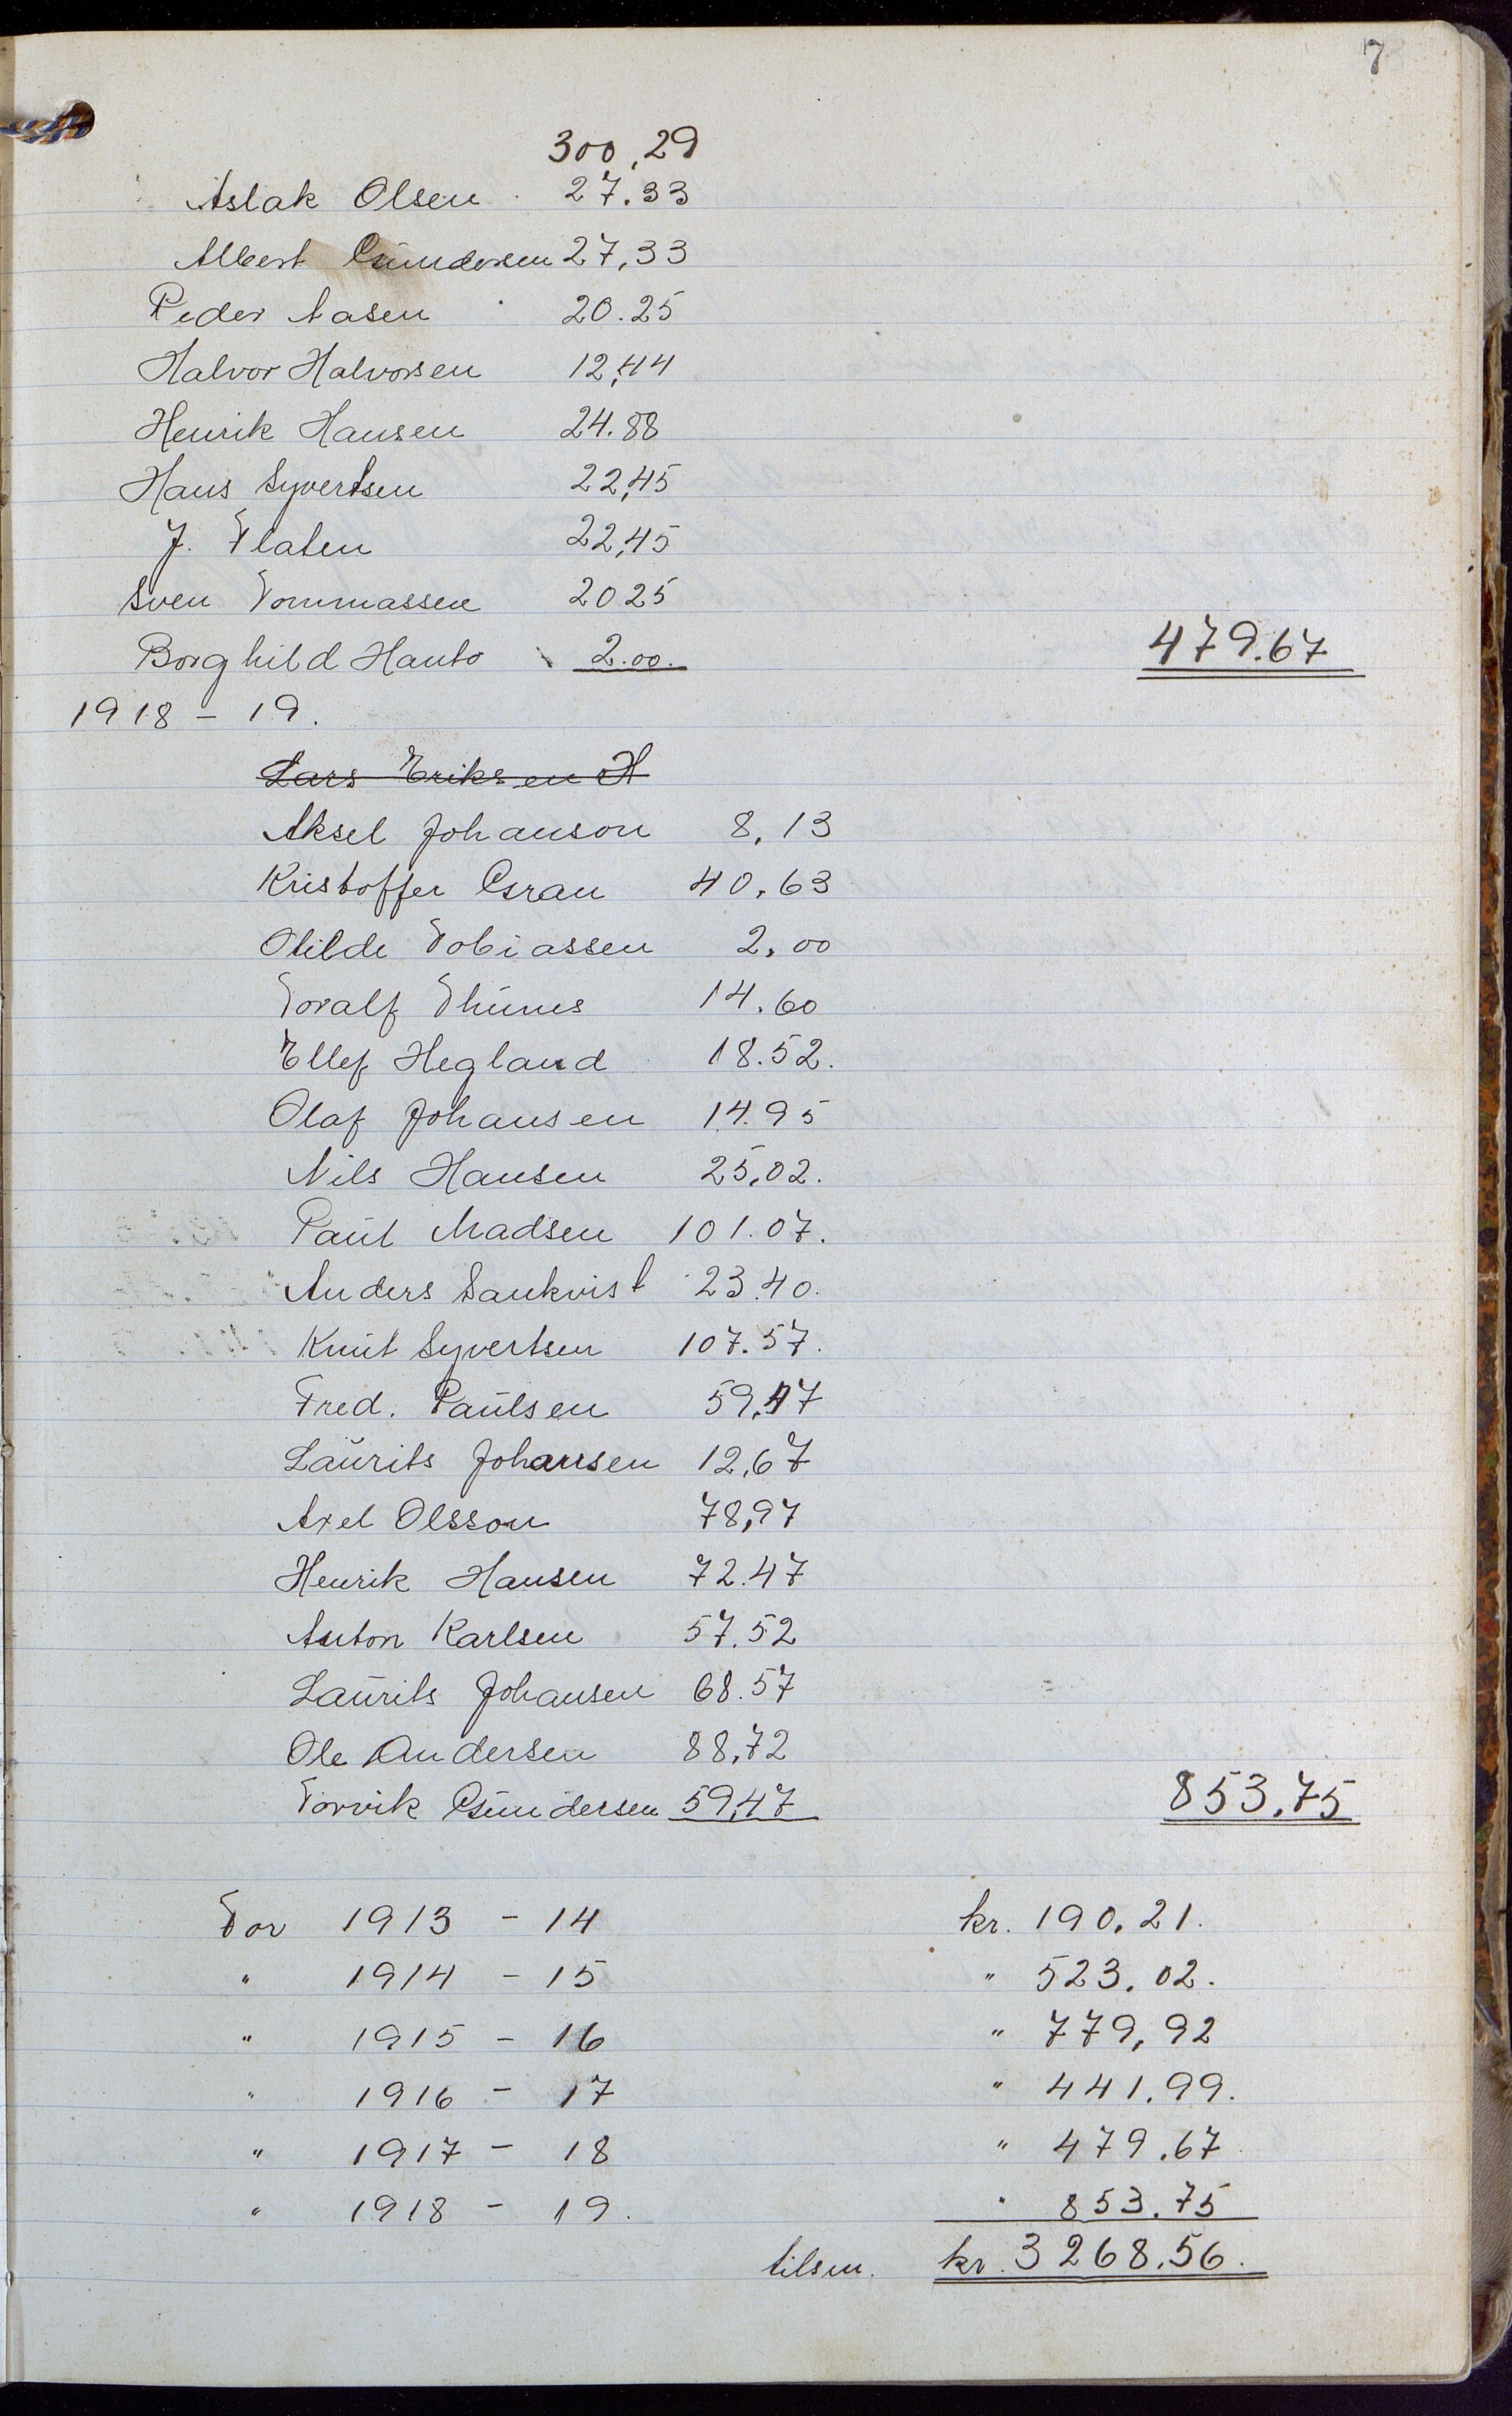 7
300,29
Aslak Olsen 27.33
Albert Gundersen 27,33
Peder Aasen 20.25
Halvor Halvorsen 12,44
Henrik Hansen 24.88
Hans Syvertsen 22,45
J. Flaten 22,45
Sven Tommassen 20.25
Borghild Hanto 2.00. 479.67
1918 - 19.
Lars Eriksen H
Aksel Johanson 8,13
Kristoffer Gran 40,63
Otilde Tobiassen 2,00
Toralf Thunes 14.60
Ellef Hegland 18.52.
Olaf Johansen 14.95
Nils Hansen 25,02.
Paul Madsen 101.07.
Anders Sankvist 23.40.
Knut Syvertsen 107.57.
Fred. Paulsen 59,47
Laurits Johansen 12,67
Axel Olsson 78,97
Henrik Hansen 72.47
Anton Karlsen 57.52
Laurits Johansen 68.57
Ole Andersen 88,72
Torvik Gundersen 59,47 853,75
For 1913 - 14 kr. 190,21.
" 1914 - 15 " 523,02.
" 1915 - 16 " 779,92
" 1916 - 17 " 441.99.
" 1917 - 18 " 479.67
" 1918 - 19. " 853.75
tilsm. kr. 3268.56.